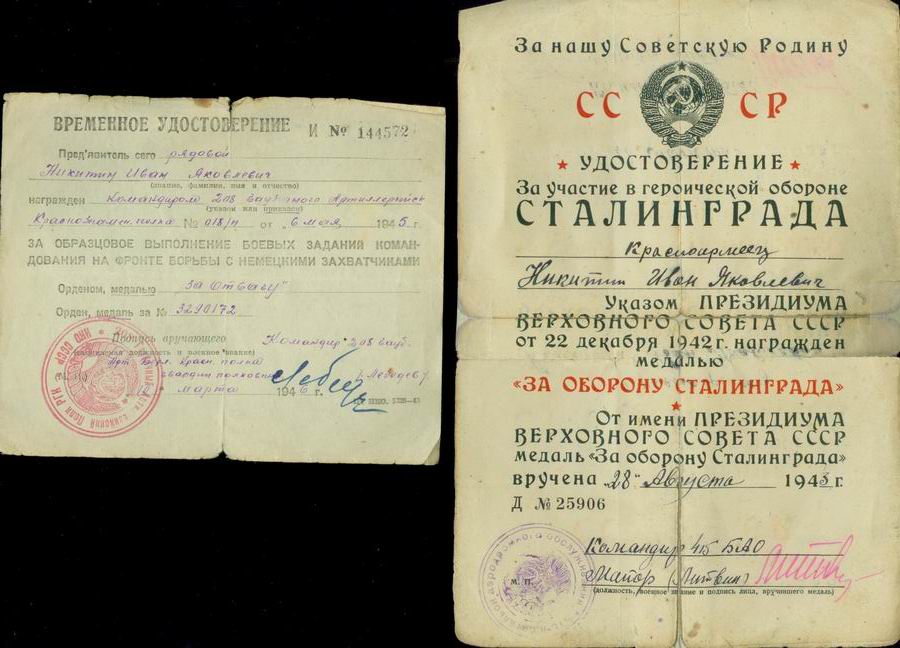 ВРЕМЕННОЕ УДОСТОВЕРЕНИЕ И № 144572
Пред'явитель сего рядовой
Никитин Иван Яковлевич
(звание, фамилия, имя и отчество)
награжден Командиром 208
(указом или приказом)
Краснознамен. полка № 018/н от „6 мая 1945 г.
ЗА ОБРАЗЦОВОЕ ВЫПОЛНЕНИЕ БОЕВЫХ ЗАДАНИЙ КОМАН-
ДОВАНИЯ НА ФРОНТЕ БОРЬБЫ С НЕМЕЦКИМИ ЗАХВАТЧИКАМИ
Орденом, медалью „За Отвагу"
Орден, медаль за № 3290172
Подпись вручающего Командир 208
гвардии полковник /Лебедев/
марта 1946 г.
За нашу Советскую Родину
СССР
УДОСТОВЕРЕНИЕ
За участие в героической обороне
СТАЛИНГРАДА
Красноармеец
Никитин Иван Яковлевич
Указом ПРЕЗИДИУМА
ВЕРХОВНОГО СОВЕТА СССР
от 22 декабря 1942 г. награжден
медалью
«ЗА ОБОРОНУ СТАЛИНГРАДА»
От имени ПРЕЗИДИУМА
ВЕРХОВНОГО СОВЕТА СССР
медаль «За оборону Сталинграда»
вручена „28" Августа 1943 г.
Д № 25906
Командир 45 БАО
м. п. Майор (Литвин)
(должность, военное звание и подпись лица, вручившего медаль)